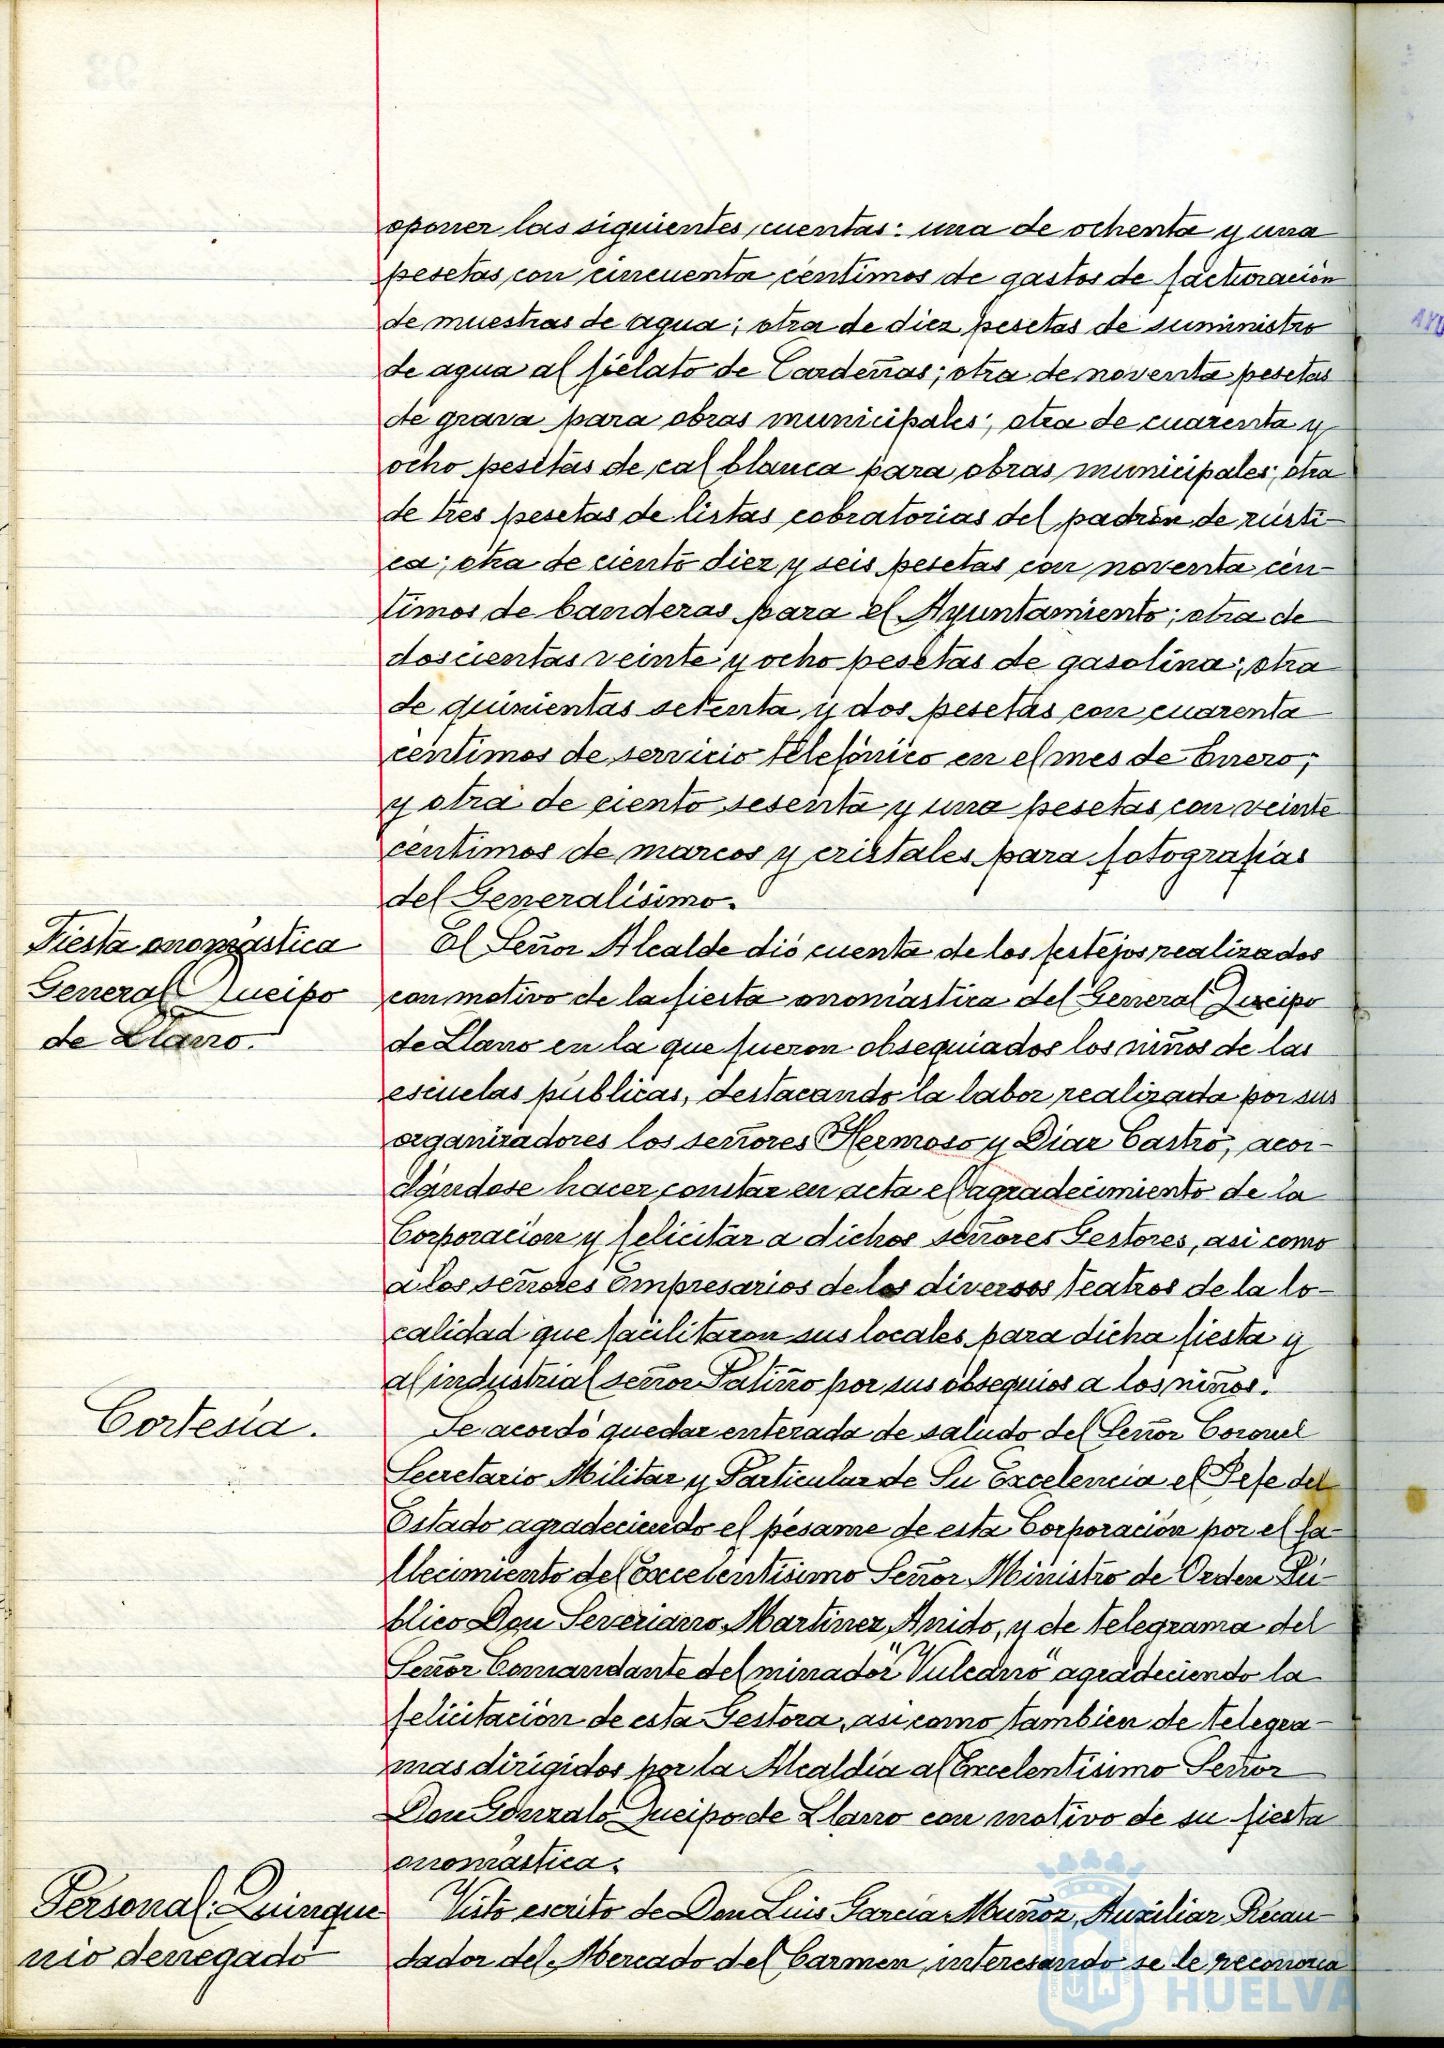 oponer las siguientes cuentas: una de ochenta y una
pesetas con cincuenta céntimos de gastos de facturación
de muestras de agua; otra de diez pesetas de suministro
de agua al fielato de Cardeñas; otra de noventa pesetas
de grava para obras municipales; otra de cuarenta y
ocho pesetas de cal blanca para obras municipales; otra
de tres pesetas de listas cobratorias del padrón de rústi-
ca; otra de ciento diez y seis pesetas con noventa cén-
timos de banderas para el Ayuntamiento; otra de
doscientas veinte y ocho pesetas de gasolina; otra
de quinientas setenta y dos pesetas con cuarenta
céntimos de servicio telefónico en el mes de Enero;
y otra de ciento sesenta y una pesetas con veinte
céntimos de marcos y cristales para fotografías
del Generalísimo.
Fiesta onomástica
General Queipo
de Llano.
El Señor Alcalde dió cuenta de los festejos realizados
con motivo de la fiesta onomástica del General Queipo
de Llano en la que fueron obsequiados los niños de las
escuelas públicas, destacando la labor realizada por sus
organizadores los señores Hermoso y Diaz Castro, acor-
dándose hacer constar en acta el agradecimiento de la
Corporación y felicitar a dichos señores Gestores, asi como
a los señores Empresarios de los diversos teatros de la lo-
calidad que facilitaron sus locales para dicha fiesta y
al industrial señor Patiño por sus obsequios a los niños.
Cortesía.
Se acordó quedar enterada de saludo del Señor Coronel
Secretario Militar y Particular de Su Excelencia el Jefe del
Estado agradeciendo el pésame de esta Corporación por el fa-
llecimiento del Excelentísimo Señor Ministro de Orden Pú-
blico Don Severiano Martinez Anido, y de telegrama del
Señor Comandante del minador "Vulcano" agradeciendo la
felicitación de esta Gestora, asi como tambien de telegra-
mas dirigidos por la Alcaldía al Excelentísimo Señor
Don Gonzalo Queipo de Llano con motivo de su fiesta
onomástica.
Personal: Quinque
nio denegado
Visto escrito de Don Luis García Muñoz, Auxiliar Recau-
dador del Mercado del Carmen, interesando se le reconozca
Ayuntamiento de
HUELVA